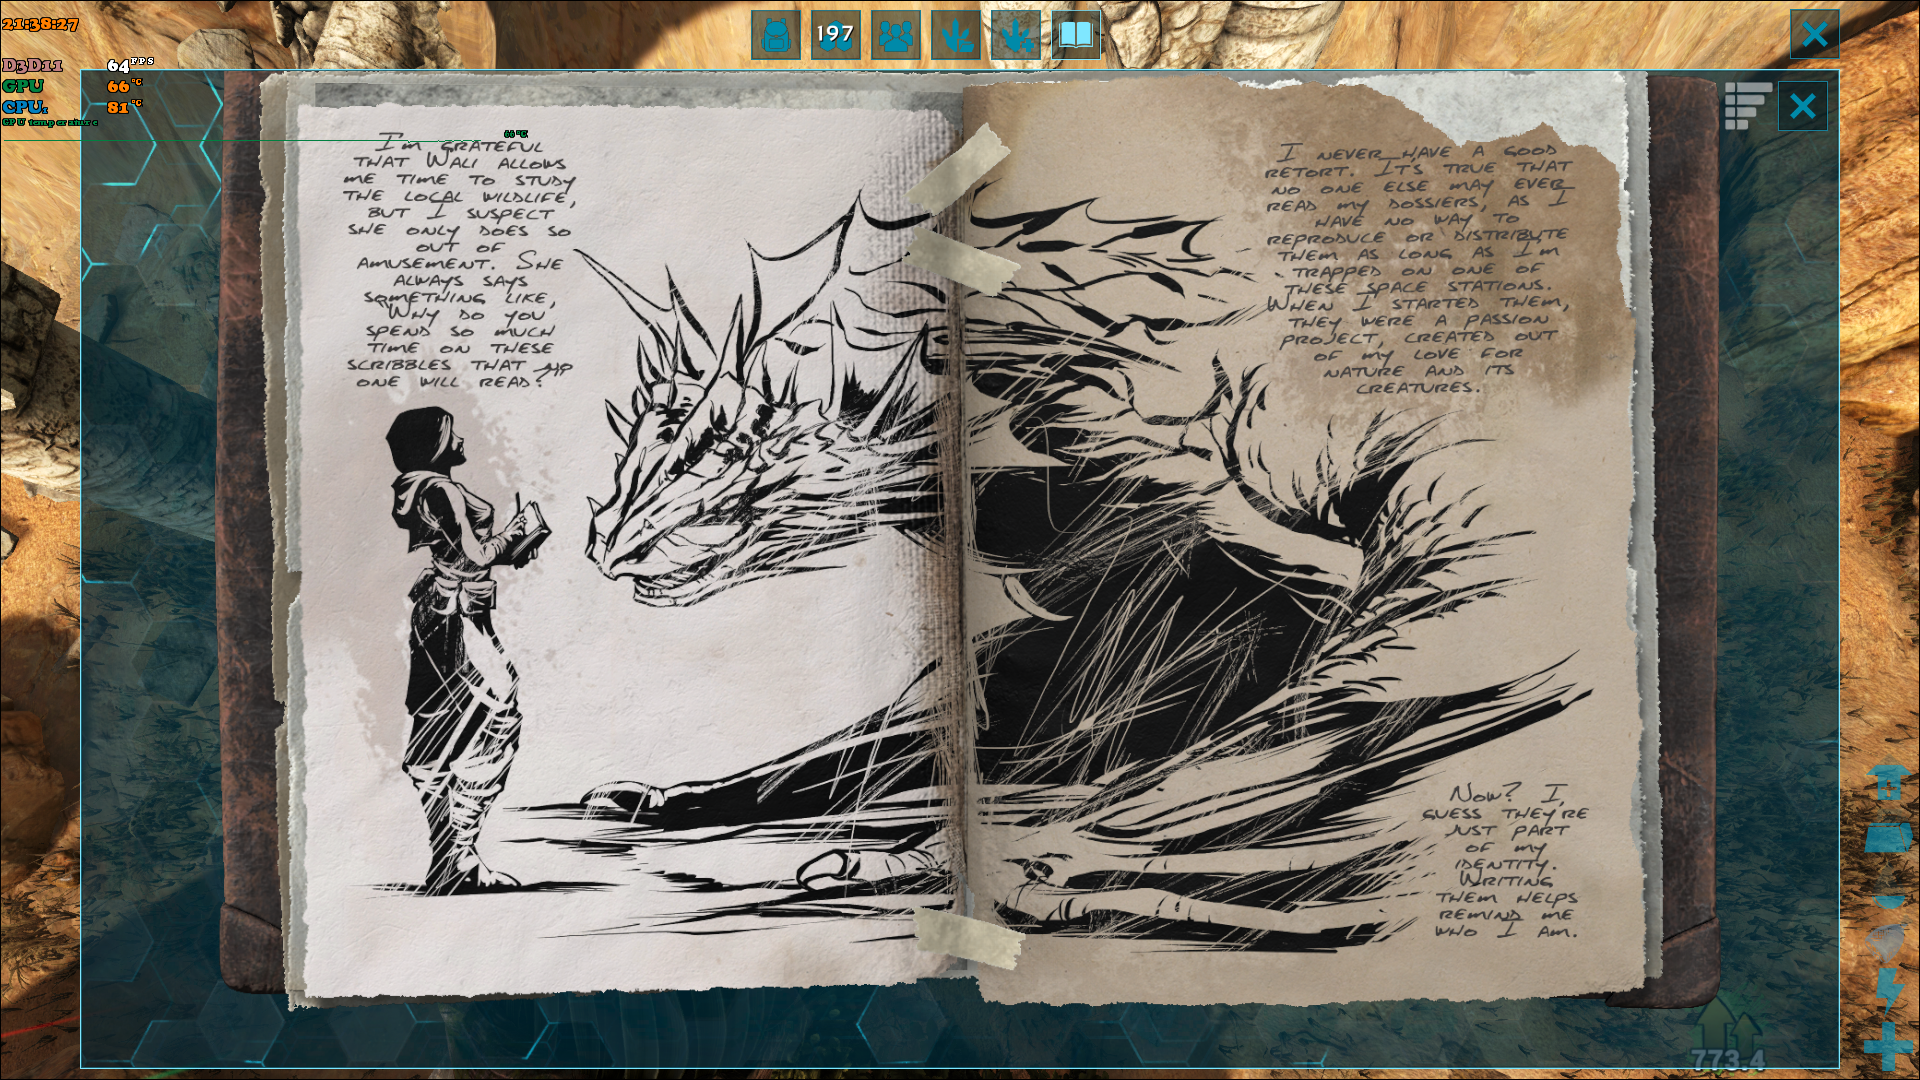 21:38:27
197
D3D11 64 FPS
GPU 66 °C
CPU 81 °C
GPU temperature
66 °C
I'm grateful
that Wali allows
me time to study
the local wildlife,
but I suspect
she only does so
out of
amusement. She
always says
something like,
"Why do you
spend so much
time on these
scribbles that no
one will read?"
I never have a good
retort. It's true that
no one else may ever
read my dossiers, as I
have no way to
reproduce or distribute
them as long as I'm
trapped on one of
these space stations.
When I started them,
they were a passion
project, created out
of my love for
nature and its
creatures.
Now? I
guess they're
just part
of my
identity.
Writing
them helps
remind me
who I am.
773.4